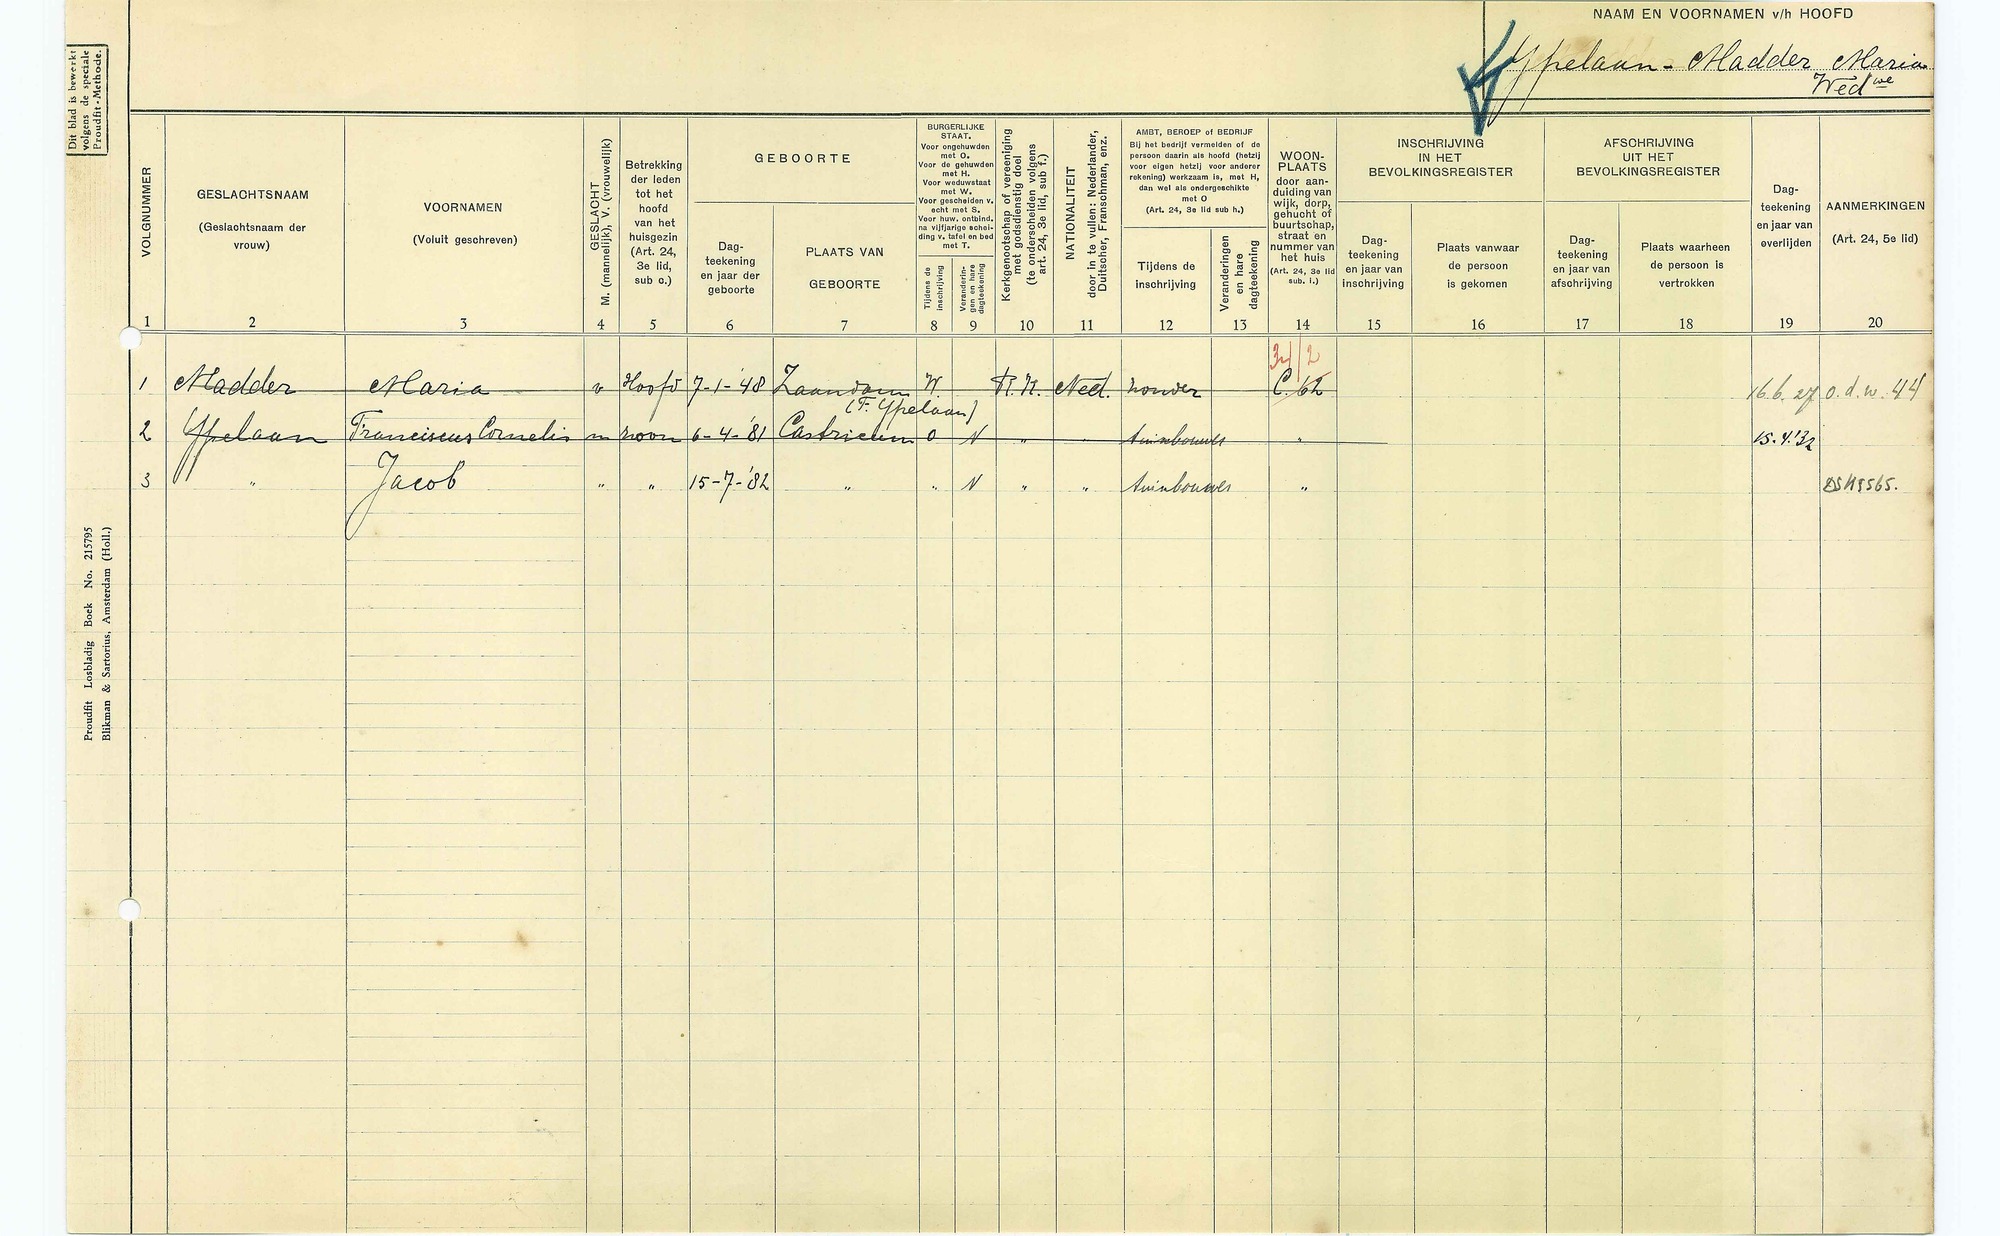 NAAM EN VOORNAMEN v/h HOOFD
Ypelaan - Madder Maria
Wed we
Dit blad is bewerkt
volgens de speciale
Proudfit-Methode.
VOLGNUMMER
GESLACHTSNAAM
(Geslachtsnaam der
vrouw)
VOORNAMEN
(Voluit geschreven)
GESLACHT
M. (mannelijk), V. (vrouwelijk)
Betrekking
der leden
tot het
hoofd
van het
huisgezin
(Art. 24,
3e lid,
sub o.)
GEBOORTE
Dag-
teekening
en jaar der
geboorte
PLAATS VAN
GEBOORTE
BURGERLIJKE
STAAT.
Voor ongehuwden
met O.
Voor de gehuwden
met H.
Voor weduwstaat
met W.
Voor gescheiden v.
echt met S.
Voor huw. ontbind.
na vijfjarige schei-
ding v. tafel en bed
met T.
Tijdens de
inschrijving
Veranderin-
gen en hare
dagteekening
Kerkgenootschap of vereeniging
met godsdienstig doel
(te onderscheiden volgens
art. 24, 3e lid, sub f.)
NATIONALITEIT
door in te vullen: Nederlander,
Duitscher, Franschman, enz.
AMBT, BEROEP of BEDRIJF
Bij het bedrijf vermelden of de
persoon daarin als hoofd (hetzij
voor eigen hetzij voor anderer
rekening) werkzaam is, met H,
dan wel als ondergeschikte
met O
(Art. 24, 3e lid sub h.)
Tijdens de
inschrijving
Veranderingen
en hare
dagteekening
WOON-
PLAATS
door aan-
duiding van
wijk, dorp,
gehucht of
buurtschap,
straat en
nummer van
het huis
(Art. 24, 3e lid
sub. i.)
INSCHRIJVING
IN HET
BEVOLKINGSREGISTER
Dag-
teekening
en jaar van
inschrijving
Plaats vanwaar
de persoon
is gekomen
AFSCHRIJVING
UIT HET
BEVOLKINGSREGISTER
Dag-
teekening
en jaar van
afschrijving
Plaats waarheen
de persoon is
vertrokken
Dag-
teekening
en jaar van
overlijden
AANMERKINGEN
(Art. 24, 5e lid)
1 2 3 4 5 6 7 8 9 10 11 12 13 14 15 16 17 18 19 20
1 Madder Maria v Hoofd 7-1-'48 Zaandam W. R.K. Ned. zonder C. 62 16.6.27 o.d.w. 44
(F. Ypelaan)
2 Ypelaan Franciscus Cornelis m zoon 6-4-'81 Castricum O N " " tuinbouwer " 15.4.'32
3 " Jacob " " 15-7-'82 " " N " " tuinbouwer "
Proudfit Losbladig Boek No. 215795
Blikman & Sartorius, Amsterdam (Holl.)